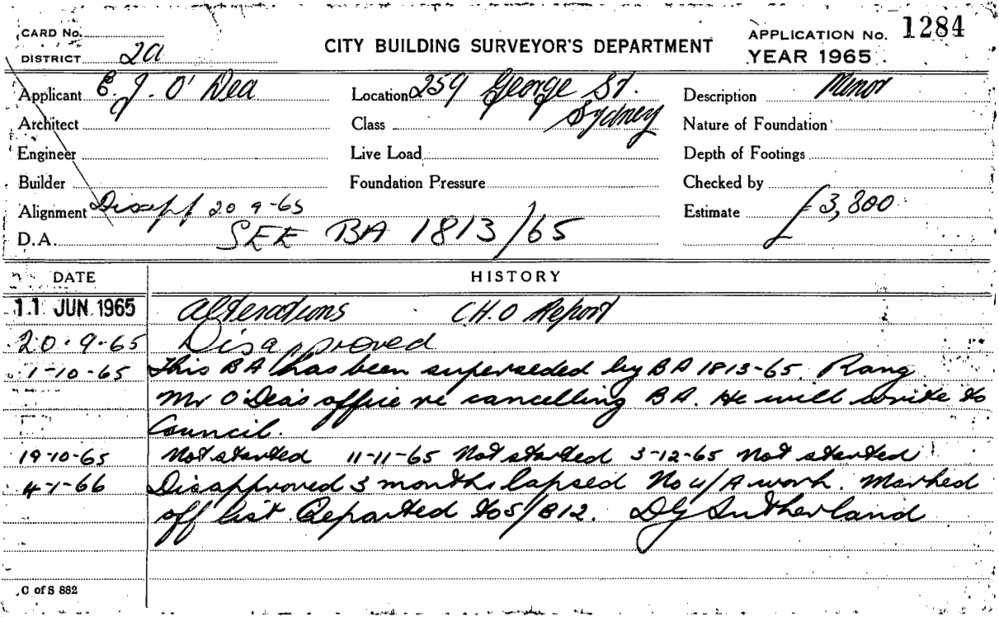 CARD No.
DISTRICT 2a
CITY BUILDING SURVEYOR'S DEPARTMENT
APPLICATION No. 1284
YEAR 1965
Applicant E. J. O'Dea
Location 259 George St. Sydney
Description Minor
Architect
Class
Nature of Foundation
Engineer
Live Load
Depth of Footings
Builder
Foundation Pressure
Checked by
Alignment Disapp 20 9-65
Estimate £3,800
D.A. SEE BA 1813/65
DATE HISTORY
11 JUN 1965 Alterations C.H.O Report
20-9-65 Disapproved
1-10-65 This BA has been superseded by BA 1813-65. Rang
Mr O'Dea's office re cancelling BA. He will write to
Council.
19-10-65 Not started 11-11-65 Not started 3-12-65 Not started
4-1-66 Disapproved 3 months lapsed No u/A work. Marked
off list. Reported to S/812. DG Sutherland
C of S 882